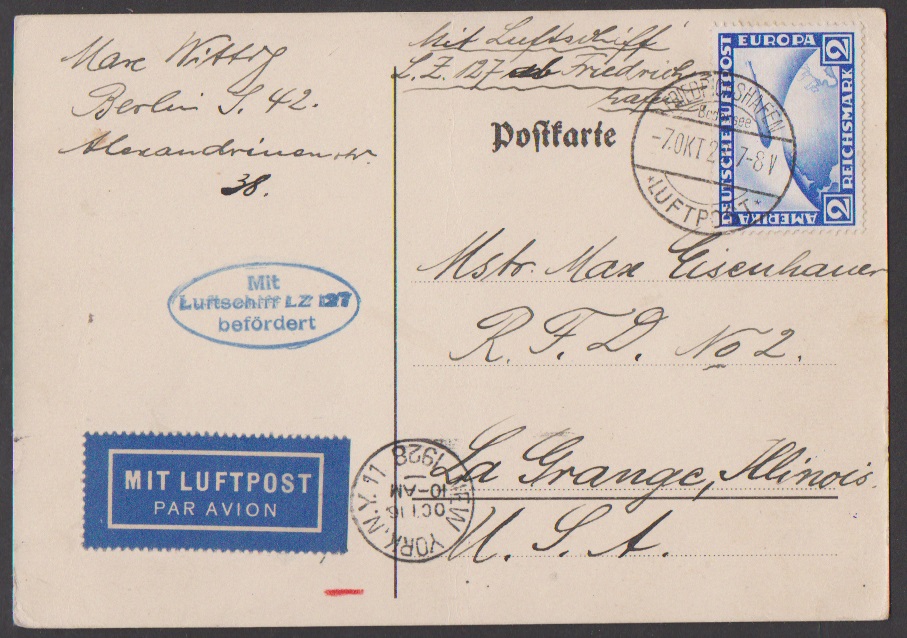 Max Wittig
Berlin S. 42.
Alexandrinenstr.
38.
Mit Luftschiff
L. Z. 127 ab Friedrichs
hafen
Postkarte
EUROPA
DEUTSCHE LUFTPOST
2 REICHSMARK 2
AMERIKA
FRIEDRICHSHAFEN
Bodensee
-7.OKT.2 7-8V
*LUFTPOST*
Mit
Luftschiff LZ 127
befördert
Mstr. Max Eisenhauer
R. F. D. No 2.
La Grange, Illinois.
U. S. A.
MIT LUFTPOST
PAR AVION
NEW YORK, N.Y. 11
OCT 16
10-AM
1928